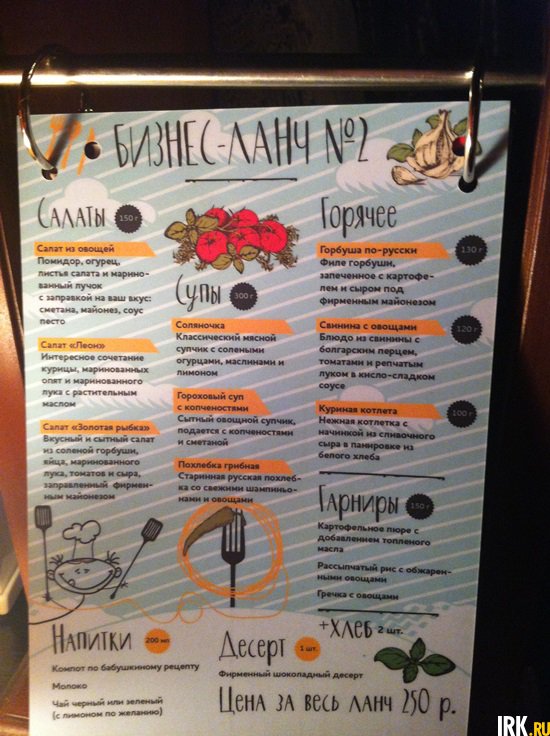 БИЗНЕС-ЛАНЧ №2
Салаты 150 г
Салат из овощей
Помидор, огурец,
листья салата и марино-
ванный лучок
с заправкой на ваш вкус:
сметана, майонез, соус
песто
Салат «Леон»
Интересное сочетание
курицы, маринованных
опят и маринованного
лука с растительным
маслом
Салат «Золотая рыбка»
Вкусный и сытный салат
из соленой горбуши,
яйца, маринованного
лука, томатов и сыра,
заправленный фирмен-
ным майонезом
Супы 300 г
Соляночка
Классический мясной
супчик с солеными
огурцами, маслинами и
лимоном
Гороховый суп
с копченостями
Сытный овощной супчик,
подается с копченостями
и сметаной
Похлебка грибная
Старинная русская похлеб-
ка со свежими шампиньо-
нами и овощами
Горячее
Горбуша по-русски 130 г
Филе горбуши,
запеченное с картофе-
лем и сыром под
фирменным майонезом
Свинина с овощами 120 г
Блюдо из свинины с
болгарским перцем,
томатами и репчатым
луком в кисло-сладком
соусе
Куриная котлета 100 г
Нежная котлетка с
начинкой из сливочного
сыра в панировке из
белого хлеба
Гарниры 150 г
Картофельное пюре с
добавлением топленого
масла
Рассыпчатый рис с обжарен-
ными овощами
Гречка с овощами
+ХЛЕБ 2 шт.
Напитки 200 мл
Компот по бабушкиному рецепту
Молоко
Чай черный или зеленый
(с лимоном по желанию)
Десерт 1 шт.
Фирменный шоколадный десерт
Цена за весь ланч 250 р.
IRK.RU